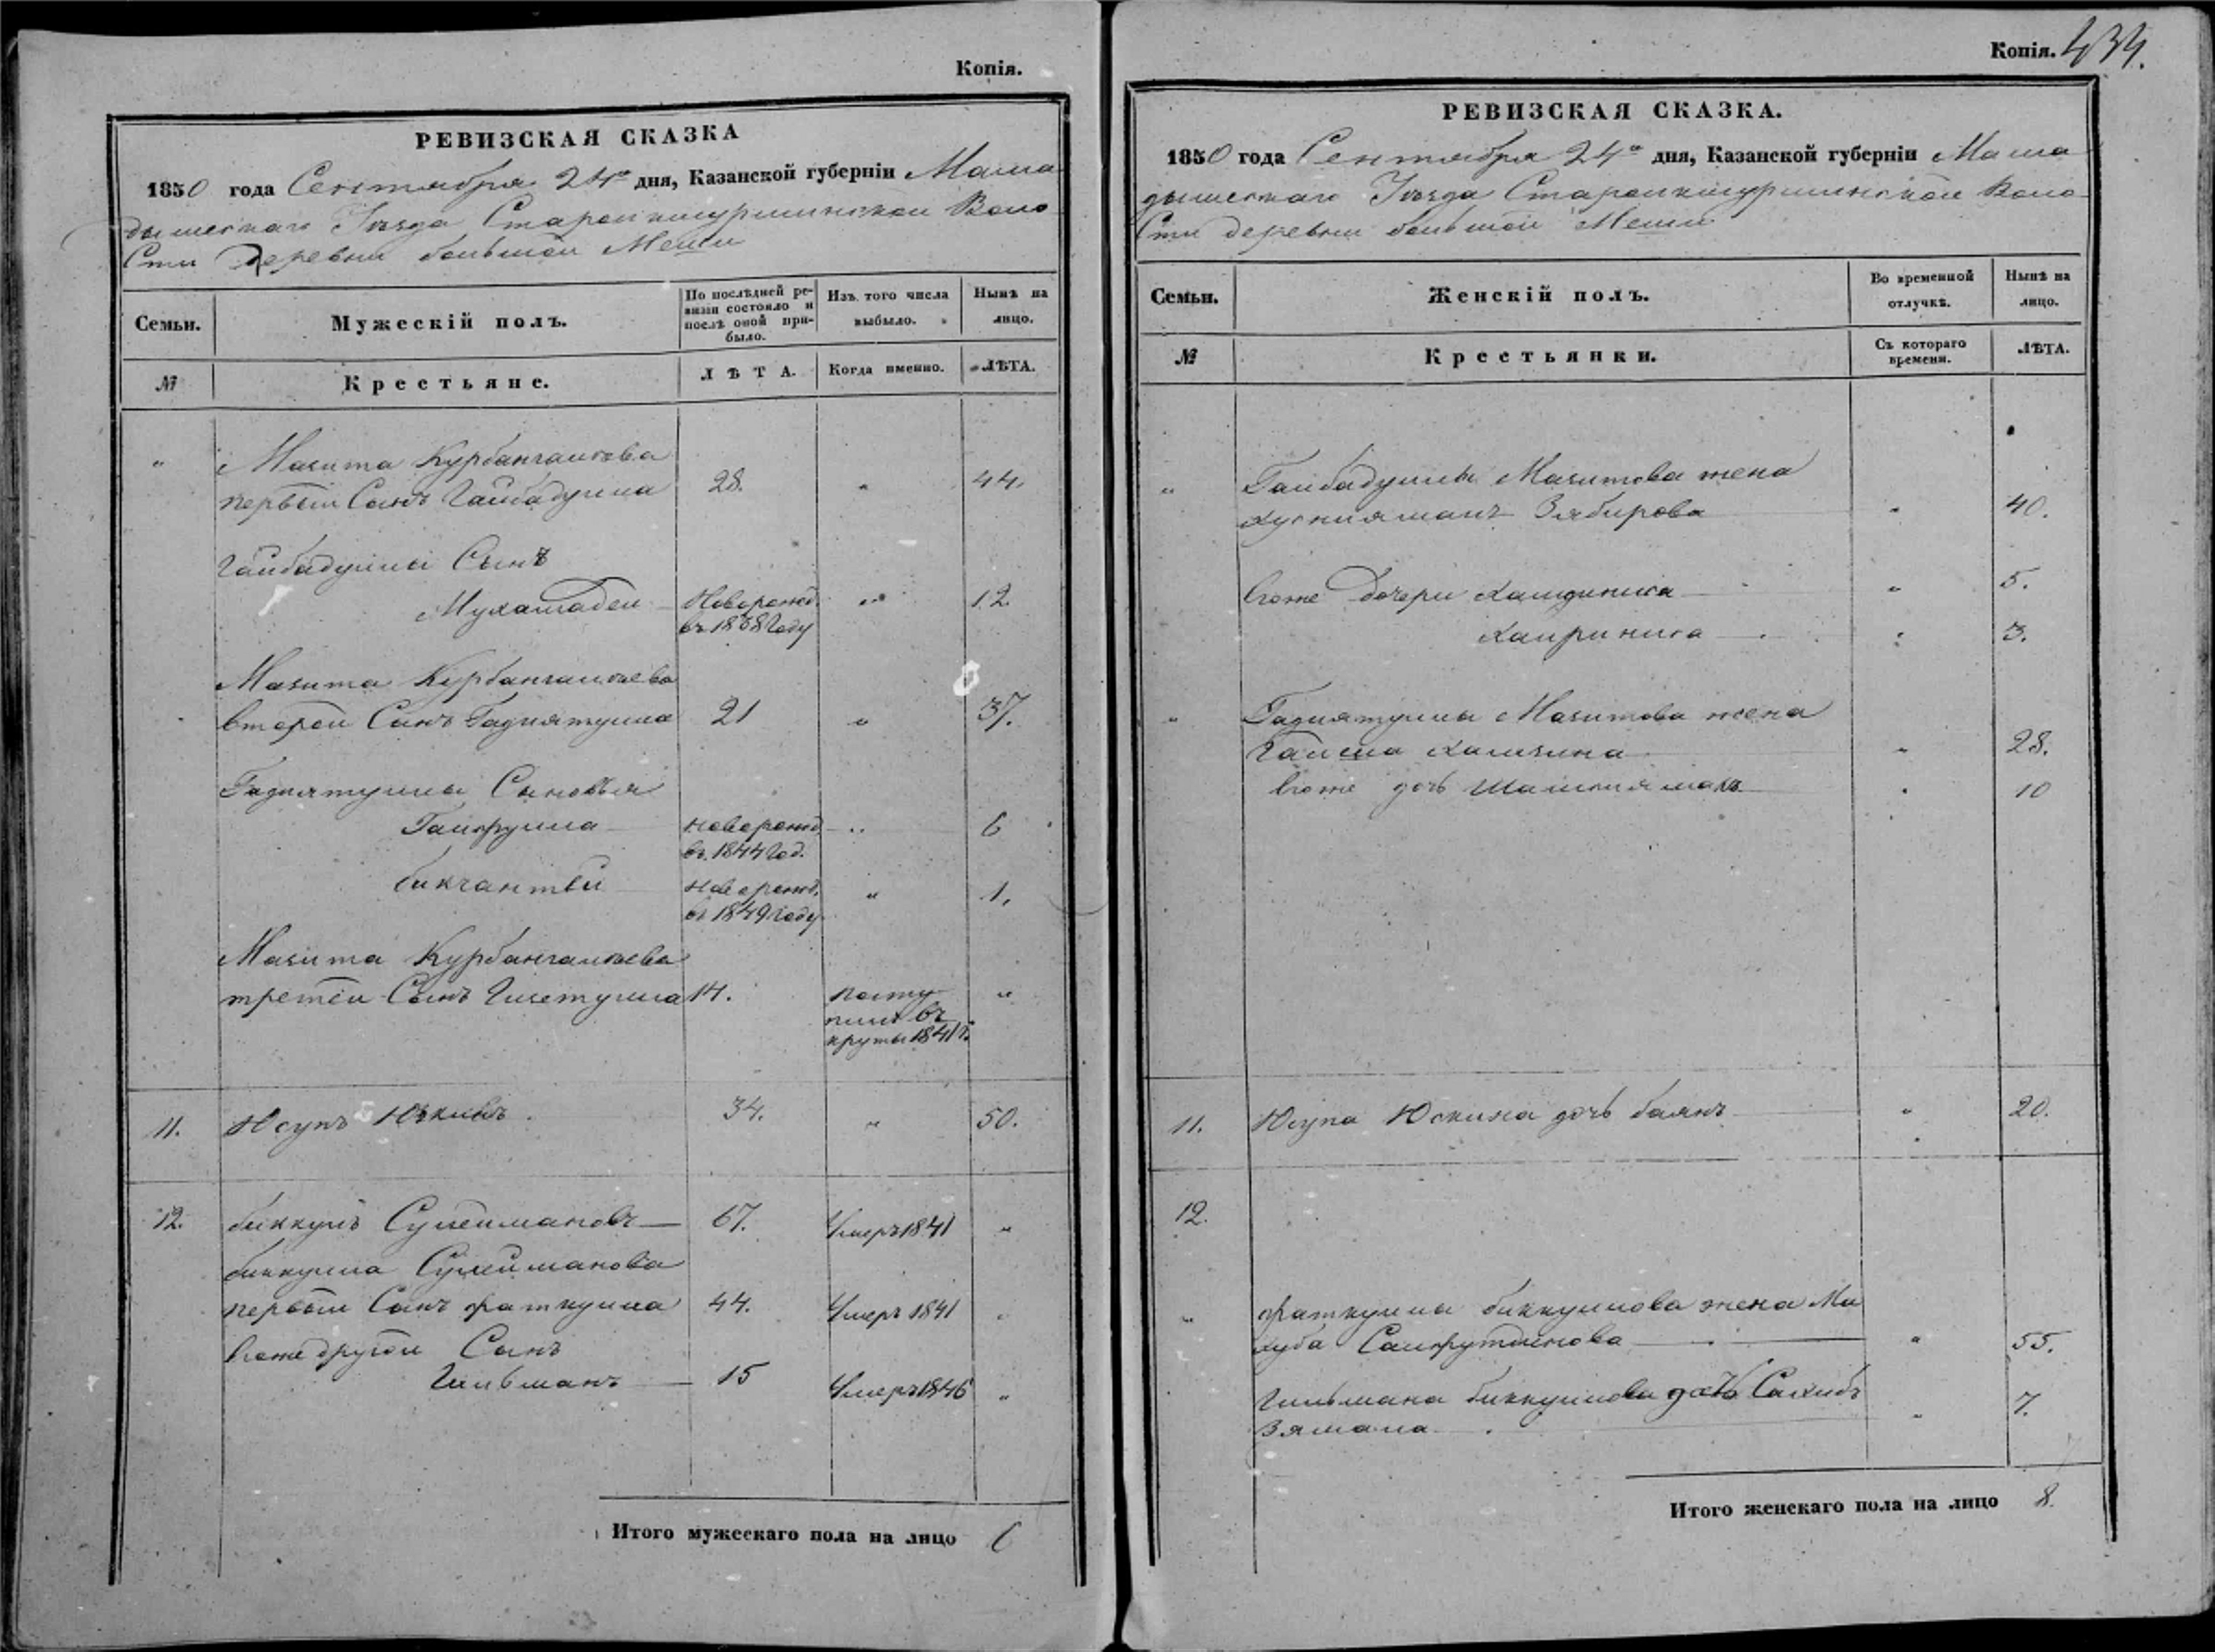 Копія.
РЕВИЗСКАЯ СКАЗКА
1850 года Сентября 24го дня, Казанской губерніи Мама
дышскаго Уѣзда Старокишурминской Воло
сти Деревни большой Меши
Семьи.
Мужескій полъ.
По послѣдней ре-
визіи состояло и
послѣ оной при-
было.
Изъ того числа
выбыло.
Нынѣ на
лицо.
№
Крестьяне.
ЛѢТА.
Когда именно.
ЛѢТА.
„ Мазита Курбангалиева
первый Сынъ Гайбадулла 28. „ 44.
Гайбадуллы Сынъ
Мухамадеи Новорожд. „ 12.
въ 1838 Году
Мазита Курбангалиева
второй Сынъ Гадиятулла 21 „ 37.
Гадиятуллы Сыновья
Гайфулла новорожд. „ 6
въ 1844 Год.
бикчантей новорожд. „ 1.
въ 1849 году
Мазита Курбангалиева
третей Сынъ 14. посту „
пилъ въ
круты 1841 г.
11. Юсупъ Юскинъ. 34. „ 50.
12. биккулъ Сулеимановъ 67. Умеръ 1841 „
биккула Сулейманова
первый Сынъ фаткулла 44. Умеръ 1841 „
Егоже другой Сынъ
Гильманъ 15 Умеръ 1846 „
Итого мужескаго пола на лицо 6
Копія. 434.
РЕВИЗСКАЯ СКАЗКА.
1850 года Сентября 24го дня, Казанской губерніи Мама
дышскаго Уѣзда Старокишурминской Воло
сти деревни большой Меши
Семьи.
Женскій полъ.
Во временной
отлучкѣ.
Нынѣ на
лицо.
№
Крестьянки.
Съ котораго
времени.
ЛѢТА.
„ Гайбадуллы Мазитова жена
Хусниямалъ Зябирова „ 40.
Егоже Дочери „ 5.
Хаириниса „ 3.
„ Гадиятуллы Мазитова жена
Гайша Хамзина „ 28.
Егоже дочь „ 10
11. Юсупа Юскина дочь баянъ „ 20.
12.
„ фаткуллы биккулова жена Ма
хуба Саифутдинова „ 55.
Гильмана биккулова дочь Сахибъ
Зямала „ 7.
Итого женскаго пола на лицо 8.